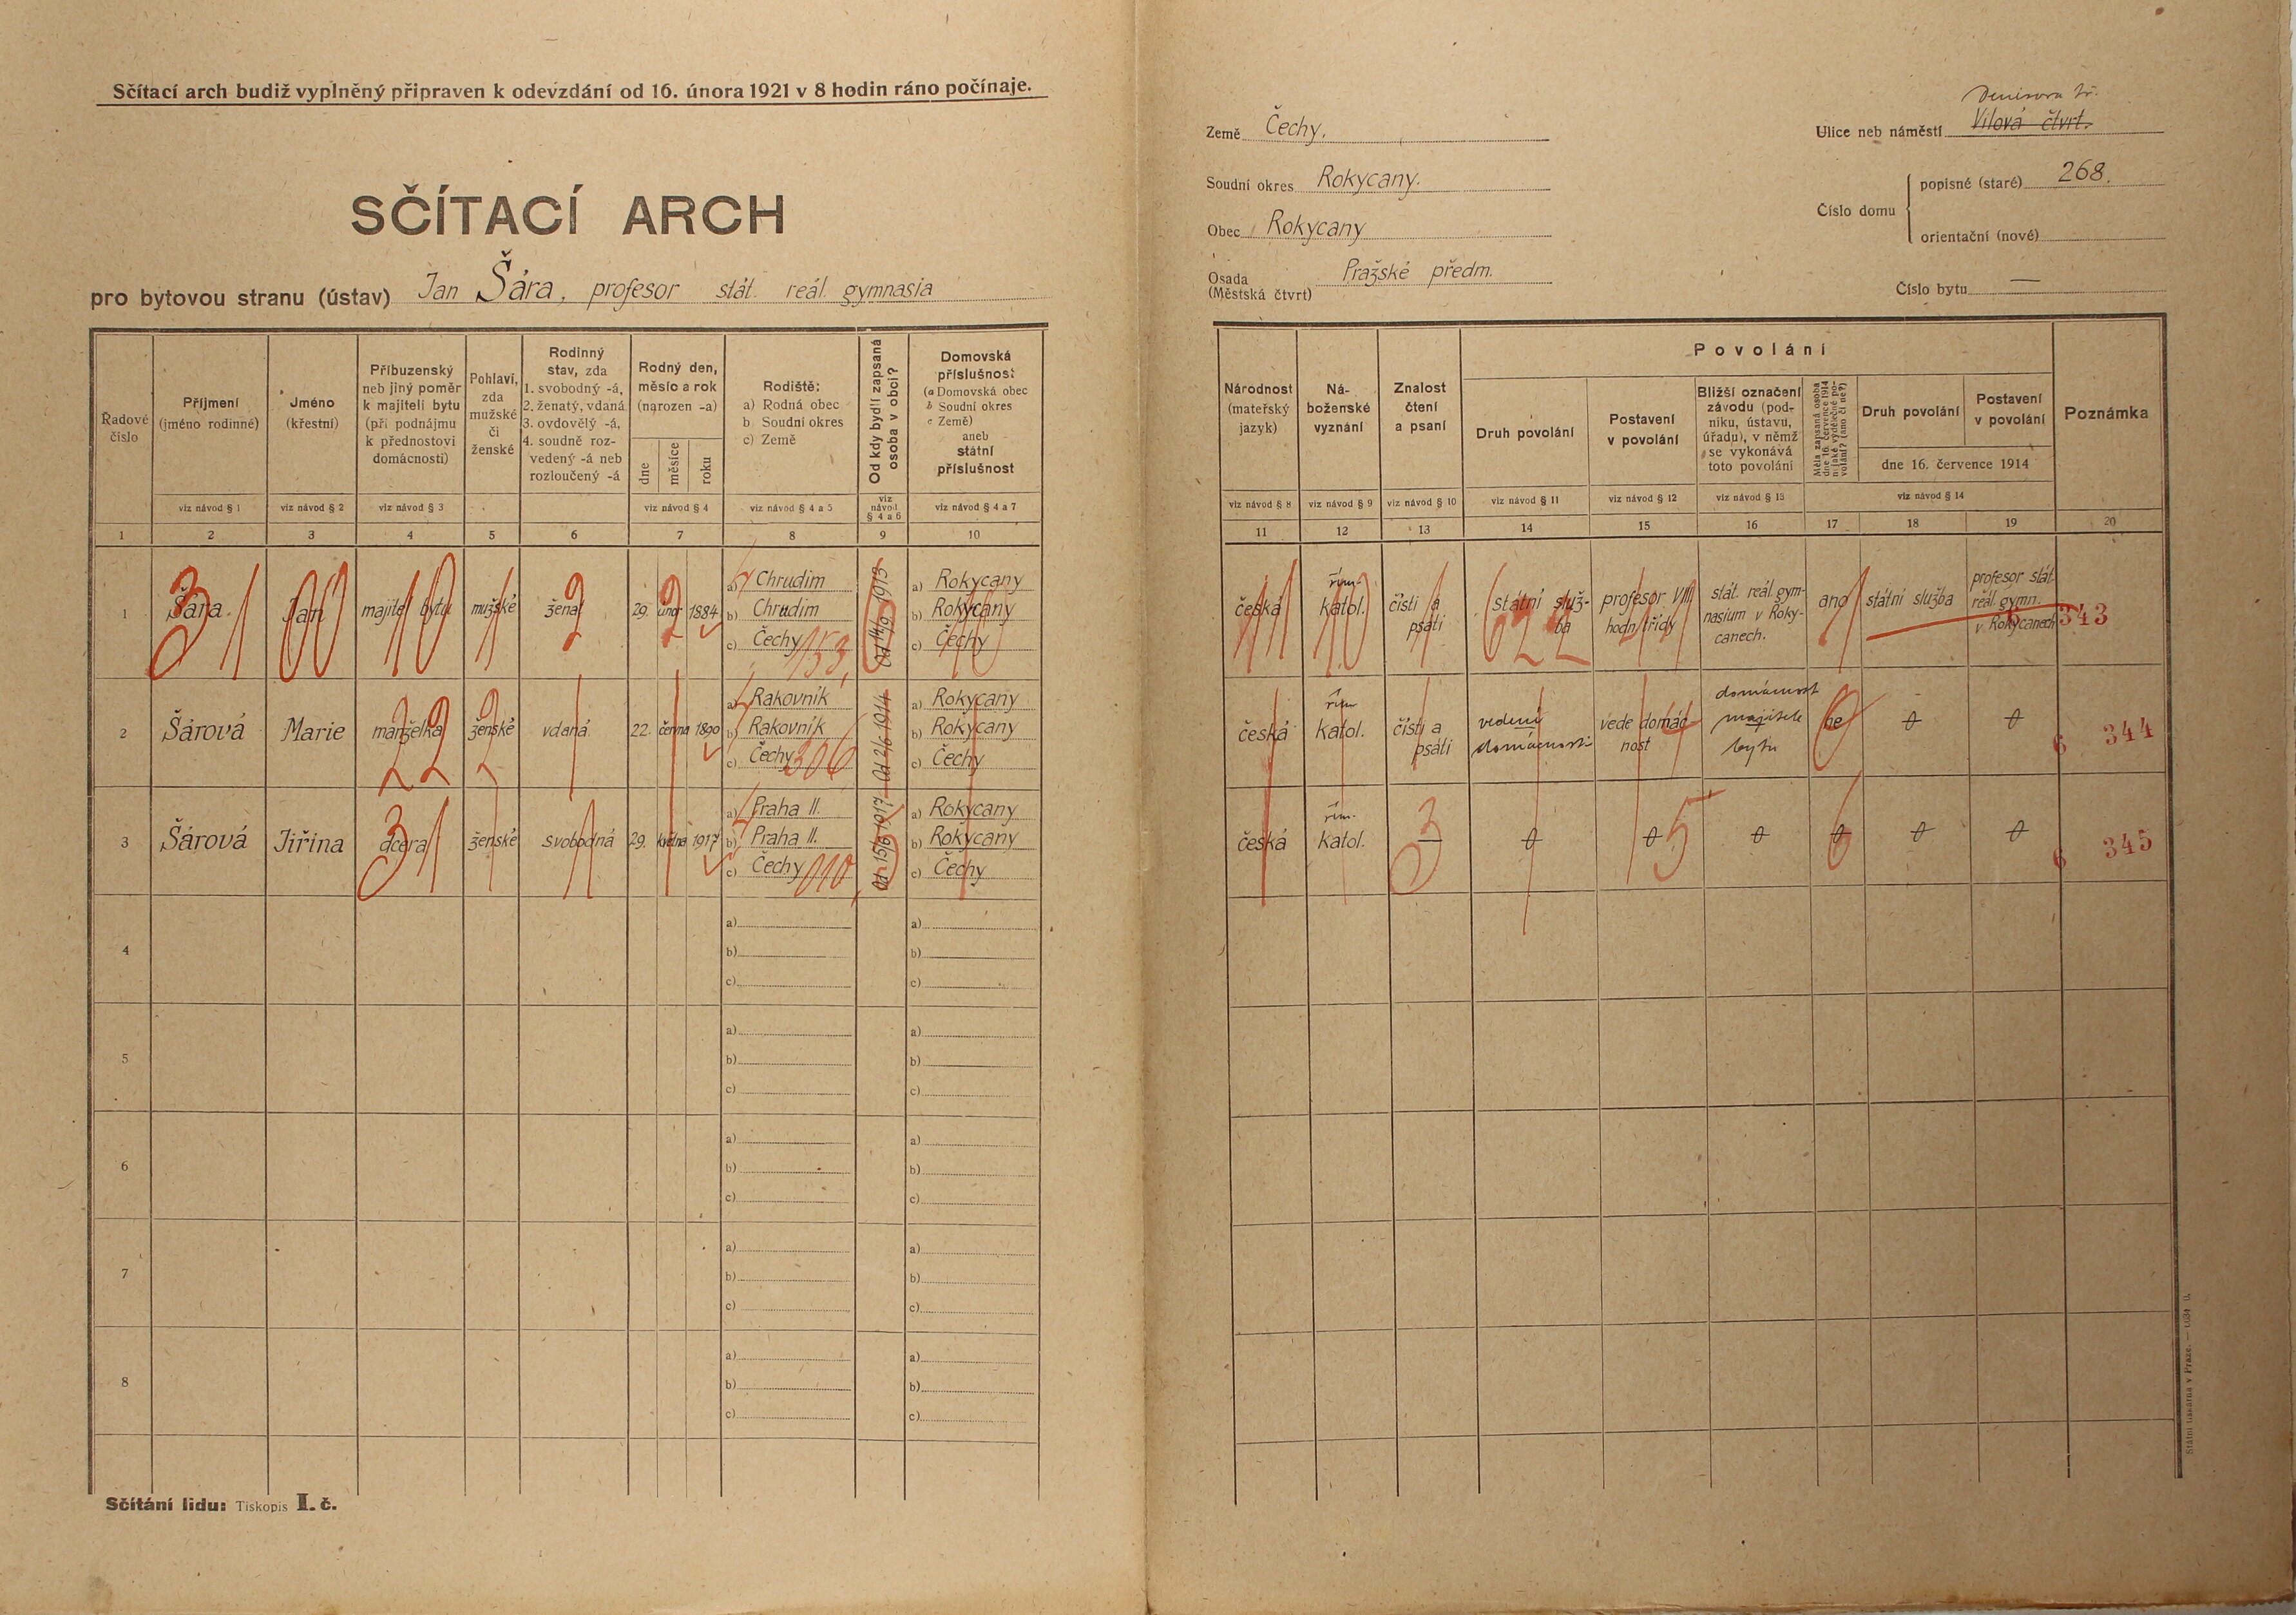 Sčítací arch budiž vyplněný připraven k odevzdání od 16. února 1921 v 8 hodin ráno počínaje.
SČÍTACÍ ARCH
pro bytovou stranu (ústav) Jan Šára, profesor stát. reál. gymnasia
Řadové číslo
Příjmení (jméno rodinné)
Jméno (křestní)
Příbuzenský neb jiný poměr k majiteli bytu (při podnájmu k přednostovi domácnosti)
Pohlaví, zda mužské či ženské
Rodinný stav, zda 1. svobodný -á, 2. ženatý, vdaná 3. ovdovělý -á, 4. soudně rozvedený -á neb rozloučený -á
Rodný den, měsíc a rok (narozen -a)
dne měsíce roku
Rodiště: a) Rodná obec b) Soudní okres c) Země
Od kdy bydlí zapsaná osoba v obci?
Domovská příslušnost (a Domovská obec b Soudní okres c Země) aneb státní příslušnost
viz návod § 1 viz návod § 2 viz návod § 3 viz návod § 4 viz návod § 4 a 5 viz návod § 4 a 6 viz návod § 4 a 7
1 2 3 4 5 6 7 8 9 10
1 Šára Jan majitel bytu mužské 29. únor 1884
a) Chrudim
b) Chrudim
c) Čechy 153
a) Rokycany
b) Rokycany
c) Čechy
2 Šárová Marie manželka ženské vdaná 22. června 1890
a) Rakovník
b) Rakovník
c) Čechy 306
Od 2/6 1914
a) Rokycany
b) Rokycany
c) Čechy
3 Šárová Jiřina dcera ženské svobodná 29. května 1917
a) Praha II.
b) Praha II.
c) Čechy 010
a) Rokycany
b) Rokycany
c) Čechy
4 a) a)
b) b)
c) c)
5 a) a)
b) b)
c) c)
6 a) a)
b) b)
c) c)
7 a) a)
b) b)
c) c)
8 a) a)
b) b)
c) c)
Sčítání lidu: Tiskopis I. č.
Země Čechy.
Soudní okres Rokycany.
Obec Rokycany
Osada (Městská čtvrt) Pražské předm.
Denisova tř.
Ulice neb náměstí Vilová čtvrt.
Číslo domu
popisné (staré) 268.
orientační (nové)
Číslo bytu —
Národnost (mateřský jazyk)
Náboženské vyznání
Znalost čtení a psaní
Povolání
Druh povolání
Postavení v povolání
Bližší označení závodu (podniku, ústavu, úřadu), v němž se vykonává toto povolání
Měla zapsaná osoba dne 16. července 1914 nějaké výdělečné povolání? (ano či ne?)
Druh povolání
Postavení v povolání
dne 16. července 1914
Poznámka
viz návod § 8 viz návod § 9 viz návod § 10 viz návod § 11 viz návod § 12 viz návod § 13 viz návod § 14
11 12 13 14 15 16 17 18 19 20
česká
řím. katol.
čísti a psáti
státní služba
profesor VIII. hodn. třídy
stát. reál. gymnasium v Rokycanech.
ano
státní služba
profesor stát. reál. gymn. v Rokycanech
343
česká
řím katol.
čísti a psáti
vedení domácnosti
vede domácnost
domácnost majitele bytu
ne
6 344
česká
řím. katol.
—
6 345